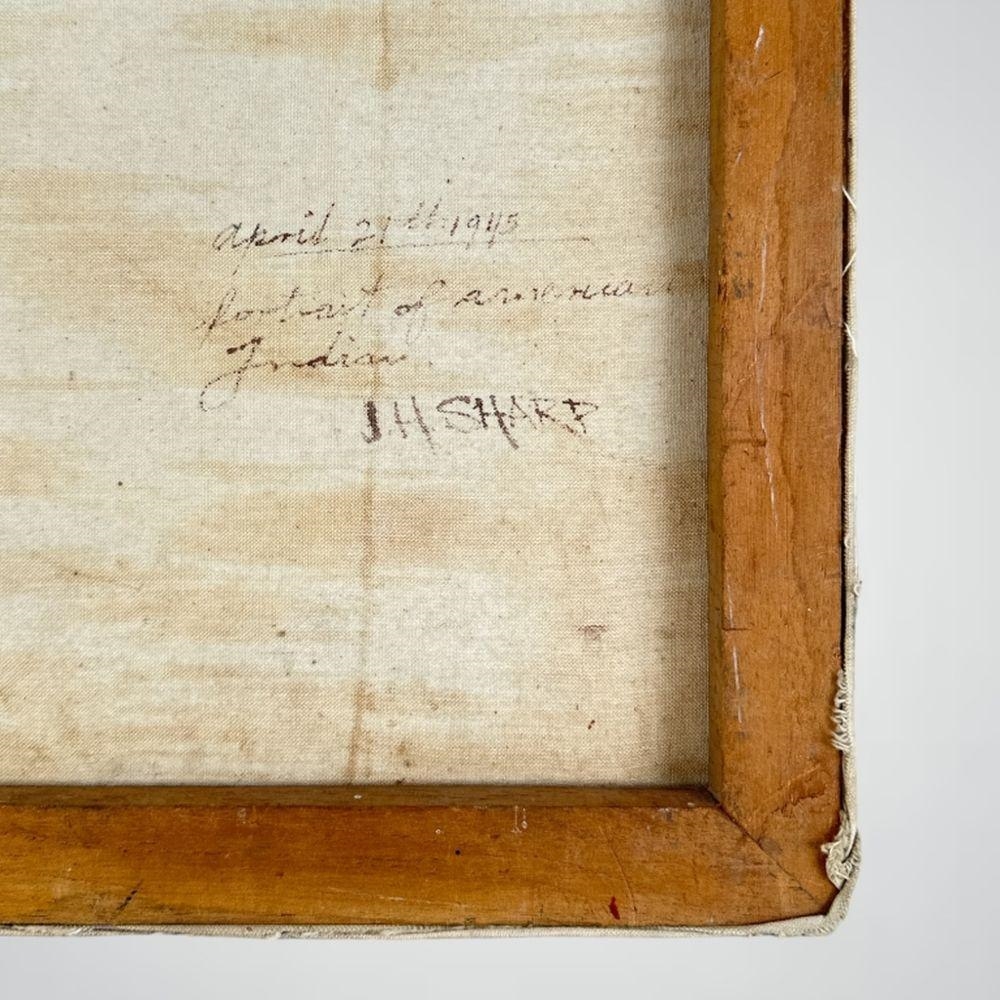 April 21th 1945
Portrait of american
Indian.
J.H. SHARP